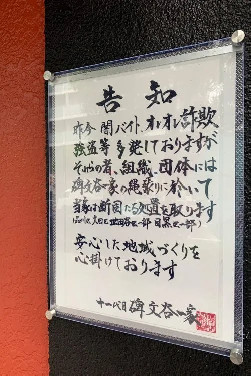 告知
昨今闇バイト、オレオレ詐欺
強盗等多発しておりますが
それらの者、組織、団体には
碑文谷一家の縄張りに於いて
当家は断固たる処置を取ります
(品川区、大田区、世田谷区一部、目黒区一部)
安心した地域づくりを
心掛けております
十一代目碑文谷一家